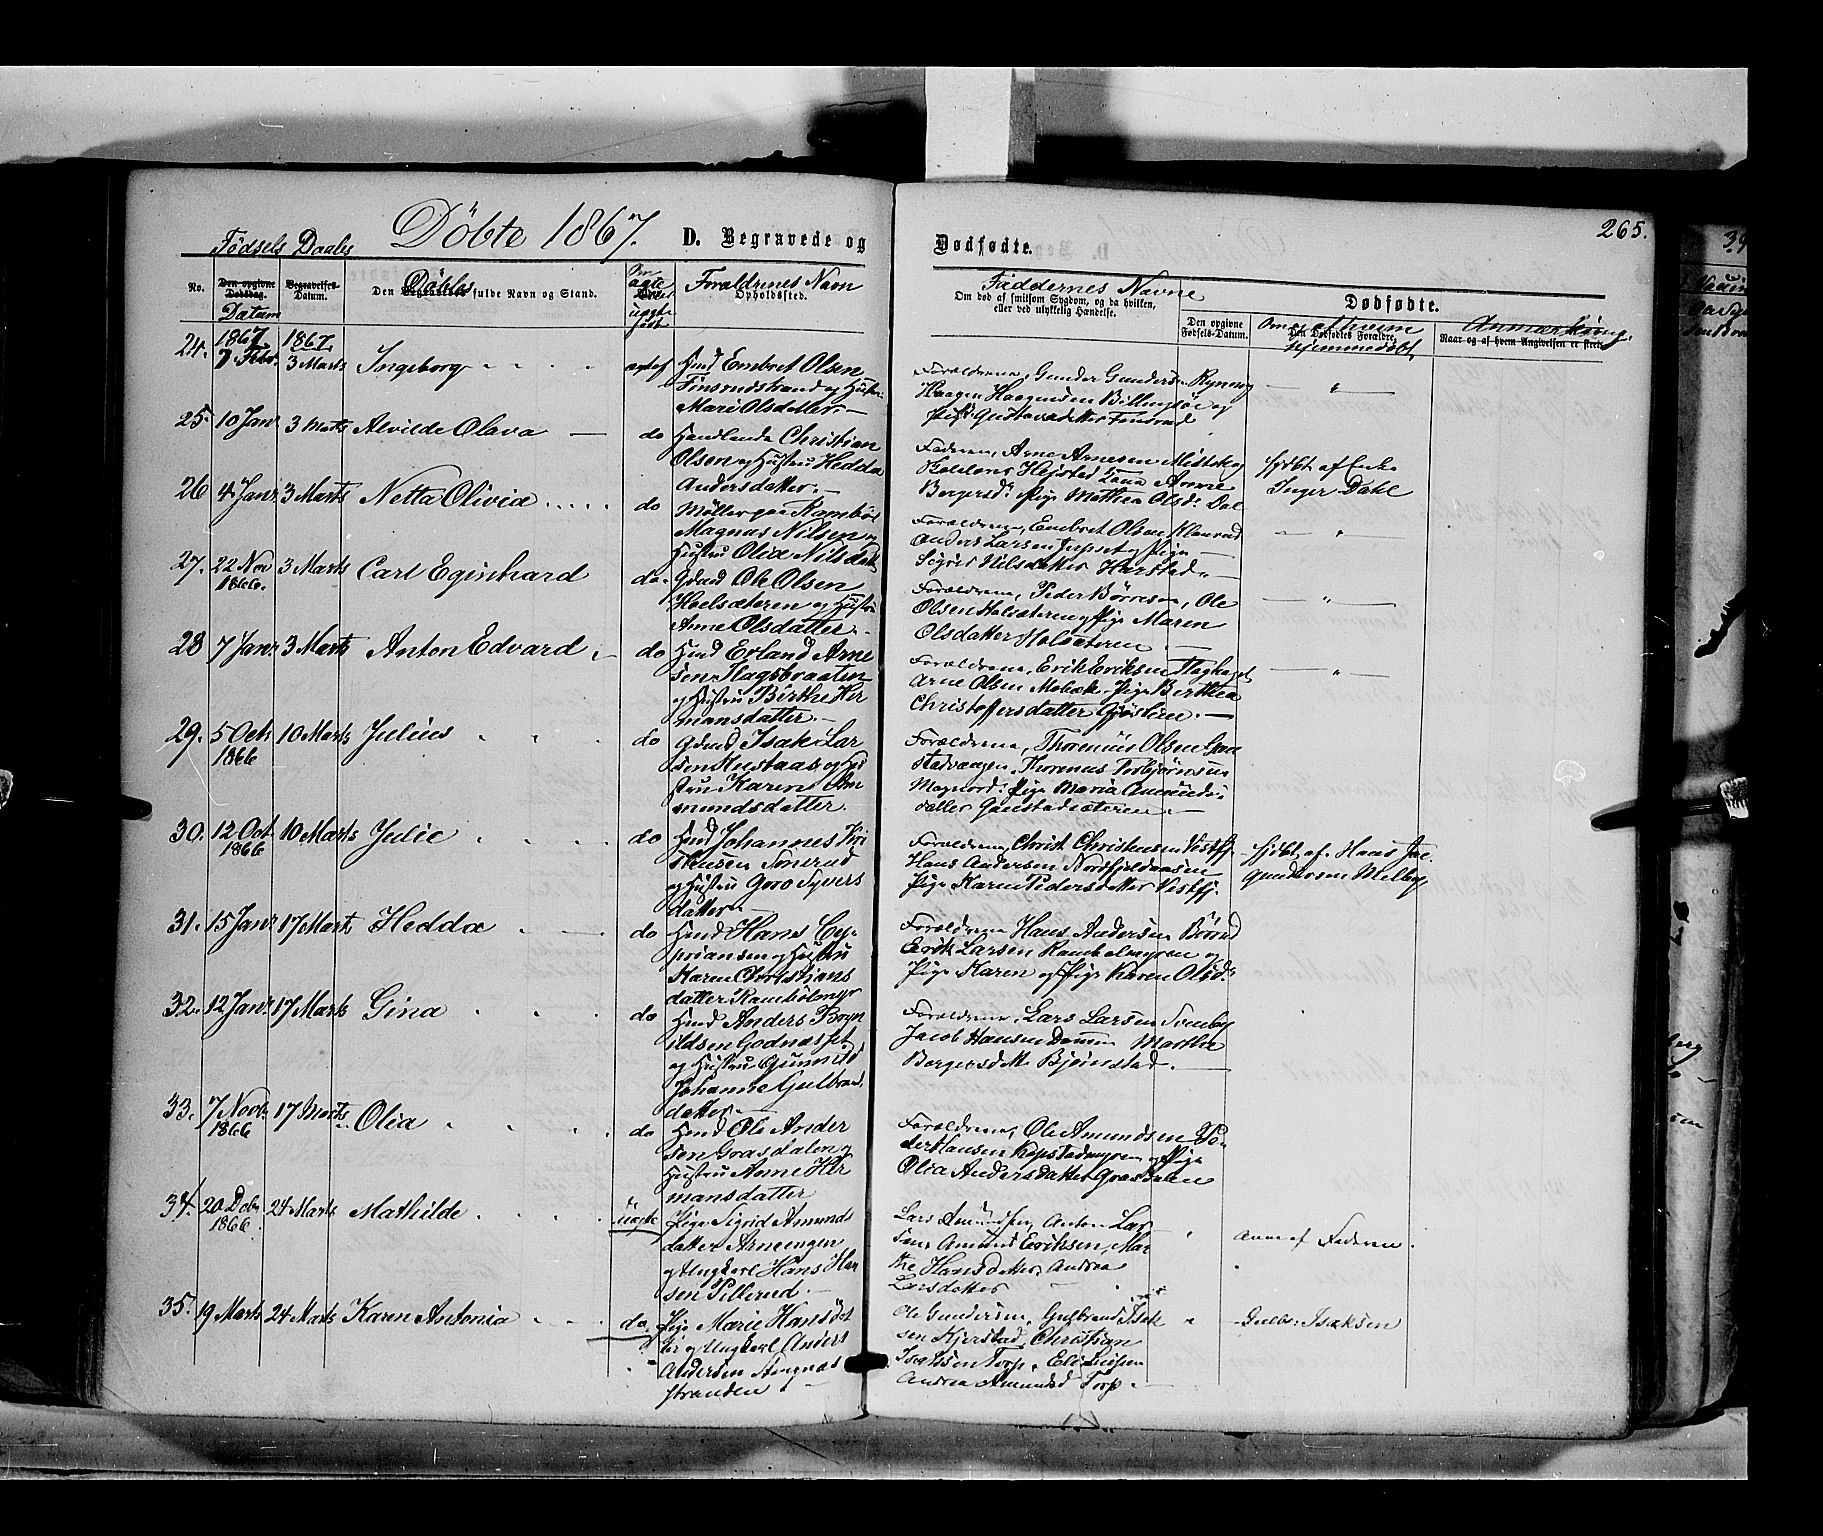 Döbte 1867. D. Begravede og
Dødfødte.
265.
Fødsels Daabs
No.
Den opgivne Dødsdag. Datum
Begravelses-Datum.
Den Begravedes Döbtes fulde Navn og Stand.
Om ægte eller uægte født
Forældrenes Navn
Opholdssted.
Faddernes Navne
Om død af smitsom Sygdom, og da hvilken,
eller ved ulykkelig Hændelse.
Dødfødte.
Den opgivne Fødsels-Datum.
Den Dødfødtes Forældre.
Hjemmedöbt
Anmærkning.
Naar og af hvem Angivelsen er skeet.
24. 1867 7 Febr. 1867. 3 Marts Ingeborg ægtef
Hmd Embret Olsen
Finsrudstrand og Hustru
Mari Olsdatter.
Forældrene, Gunder Gunders. Rynning
Haagen Haagensen Billingsöe og
Pige Gustavadatter
25. 10 Janr 3 Marts Alvilde Olava do
Handlende Christian
Olsen og Hustru Hedda
Andersdatter.
Faderen, Arne Arnesen Midtskog
Hejstad Lana Anne
Borgersdr Pige Mathea Olsdr Dal
hjdbt af Enke
Inger Dahl
26 4 Janr 3 Marts Netta Olivia do
Möller paa Kamböl
Magnus Nilsen og
Hustru Olia Nilsdatt.
Forældrene, Embret Olsen
Anders Larsen og Pige
Sigrid Nilsdatter Harstad
27. 22 Nov 1866. 3 Marts Carl Eginhard do.
Gdmd Ole Olsen
Hoelsæteren og Hustru
Anne Olsdatter.
Forældrene, Peder Børresen, Ole
Olsen Holsæteren og Pige Maren
Olsdatter Holsæteren
28 7 Janr 3 Marts Anton Edvard do
Hmd Erland Arne
sen Flagsbraaten
og Hustru Birthe Her
mansdatter.
Forældrene, Erik Eriksen
Arne Olsen Mobæk. Pige Berthea
Christoffersdatter Gjöslien.
29. 5 Oct. 1866 10 Marts Julius do
Gdmd Isak Lar
sen Kustaas og Hu
stru Karen Am
mundsdatter.
Forældrene, Thorenius Olsen Gaue
stadvangen, Thorenus Torbjörnsen
Magnord. Pige Maria Amunds
datter Gaustadsæteren.
30. 12 Oct. 1866 10 Marts Julie do
Hmd Johannes Kri
stensen
og Hustru Goro Syvers
datter.
Forældrene, Christ. Christensen Vestfj.
Hans Andersen Nordfjeldaasen
Pige Karen Pedersdatter Vestfj.
hjdbt. af Hans Jac.
Gundersen Melby
31. 15 Janr 17 Marts Hedda do
Hmd Hans Cy-
priansen og Hustru
Karen Christians
datter Kambölmyr
Forældrene Hans Andersen Börrud
Erik Larsen Kambölmyren og
Pige Karen og Pige Karen Olsdr
32. 12 Janr 17 Marts Gina do
Hmd Anders Bryn
ildsen Godnæsset
og Hustru Gunnild
Johanne Gulbrands
datter.
Forældrene, Lars Larsen
Jacob Hansen Martha
Borgersdatt. Bjørnstad.
33. 7 Novb. 1866 17 Marts Olia do
Hmd Ole Ander
sen Grasdalen og
Hustru Anne Her
mansdatter
Forældrene, Ole Amundsen Pe-
der Hansen og Pige
Olia Andersdatter Grasdalen
34. 20 Debr. 1866 24 Marts Mathilde uægte
Pige Sigrid Amunds
datter Arneengen
og Ungkarl Hans Han
sen Pillerud.
Lars Amundsen, Anton Lar
sen, Amund Eriksen, Mar
the Hansdatter, Andrea
Larsdatter
Anm. af Faderen.
35. 19 Marts 24 Marts Karen Antonia do.
Pige Marie Hansdat
ter og Ungkarl Anders
Andersen Agnæs
stranden
Ole Gundersen, Gulbrand Isak
sen Kjerstad, Christian
Isaksen Torp, Eli
Andrea Amundsd Torp.
Gulbr. Isaksen